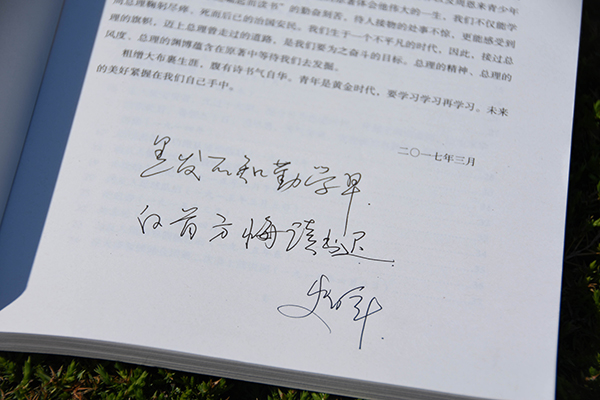 周总理鞠躬尽瘁、死而后已的治国安民。我们生于一个不平凡的时代，因此，接过总
理的旗帜，迈上总理曾走过的道路，是我们要为之奋斗的目标。总理的精神、总理的
风度、总理的渊博蕴含在原著中等待我们去发掘。
粗缯大布裹生涯，腹有诗书气自华。青年是黄金时代，要学习学习再学习。未来
的美好紧握在我们自己手中。
二〇一七年三月
黑发不知勤学早
白首方悔读书迟